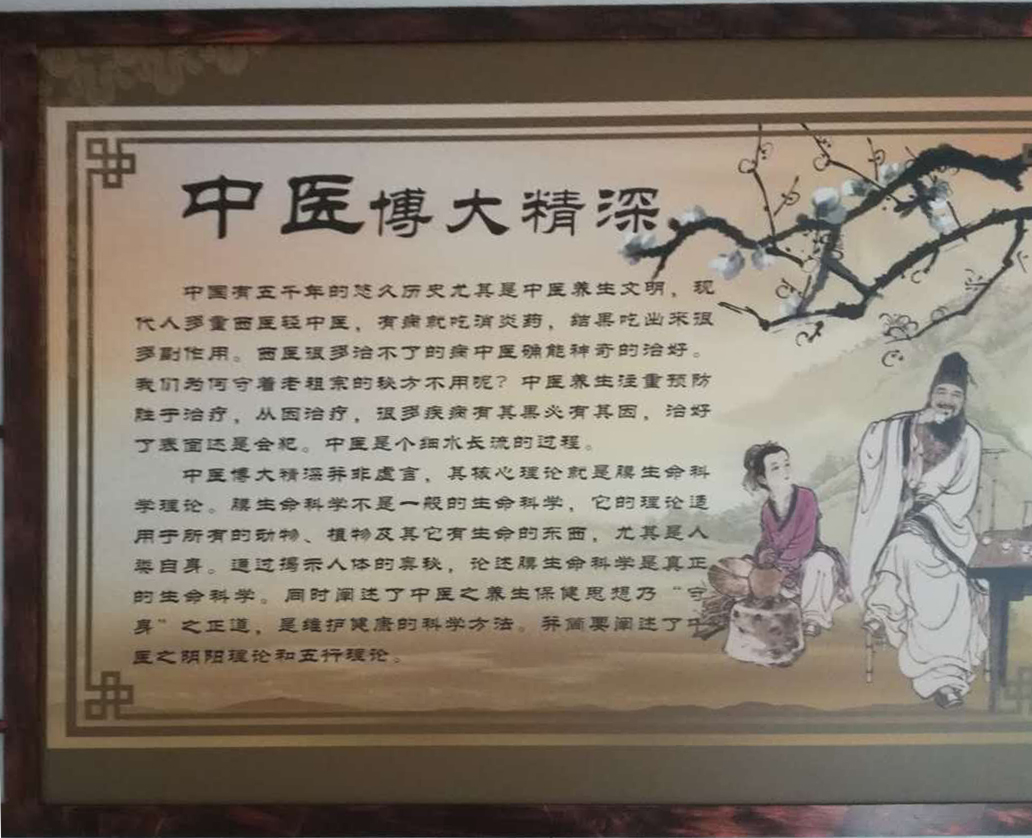 中医博大精深
中国有五千年的悠久历史尤其是中医养生文明，现
代人多重西医轻中医，有病就吃消炎药，结果吃出来很
多副作用。西医很多治不了的病中医确能神奇的治好。
我们为何守着老祖宗的秘方不用呢？中医养生注重预防
胜于治疗，从因治疗，很多疾病有其果必有其因，治好
了表面还是会犯。中医是个细水长流的过程。
中医博大精深并非虚言，其核心理论就是膜生命科
学理论。膜生命科学不是一般的生命科学，它的理论适
用于所有的动物、植物及其它有生命的东西，尤其是人
类自身。通过揭示人体的奥秘，论述膜生命科学是真正
的生命科学。同时阐述了中医之养生保健思想乃“守
身”之正道，是维护健康的科学方法。并简要阐述了中
医之阴阳理论和五行理论。